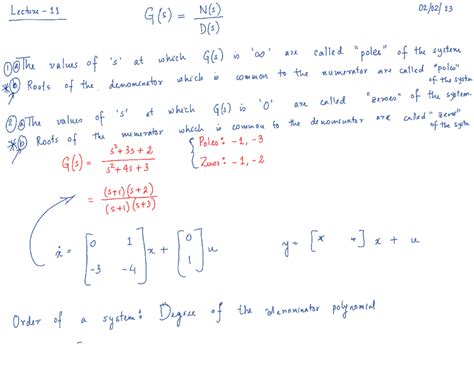 Lecture - 11
G(s) = N(s) / D(s)
02/02/23
1 a The values of 's' at which G(s) is '∞' are called "poles" of the system
* b Roots of the denominator which is common to the numerator are called "poles" of the system
2 a The values of 's' at which G(s) is '0' are called "zeroes" of the system.
* b Roots of the numerator which is common to the denominator are called "zeros" of the system
G(s) = s²+3s+2 / s²+4s+3
{ Poles: -1, -3
Zeros: -1, -2
= (s+1)(s+2) / (s+1)(s+3)
ẋ = [0 1; -3 -4] x + [0; 1] u
y = [ ] x + u
Order of a system: Degree of the denominator polynomial